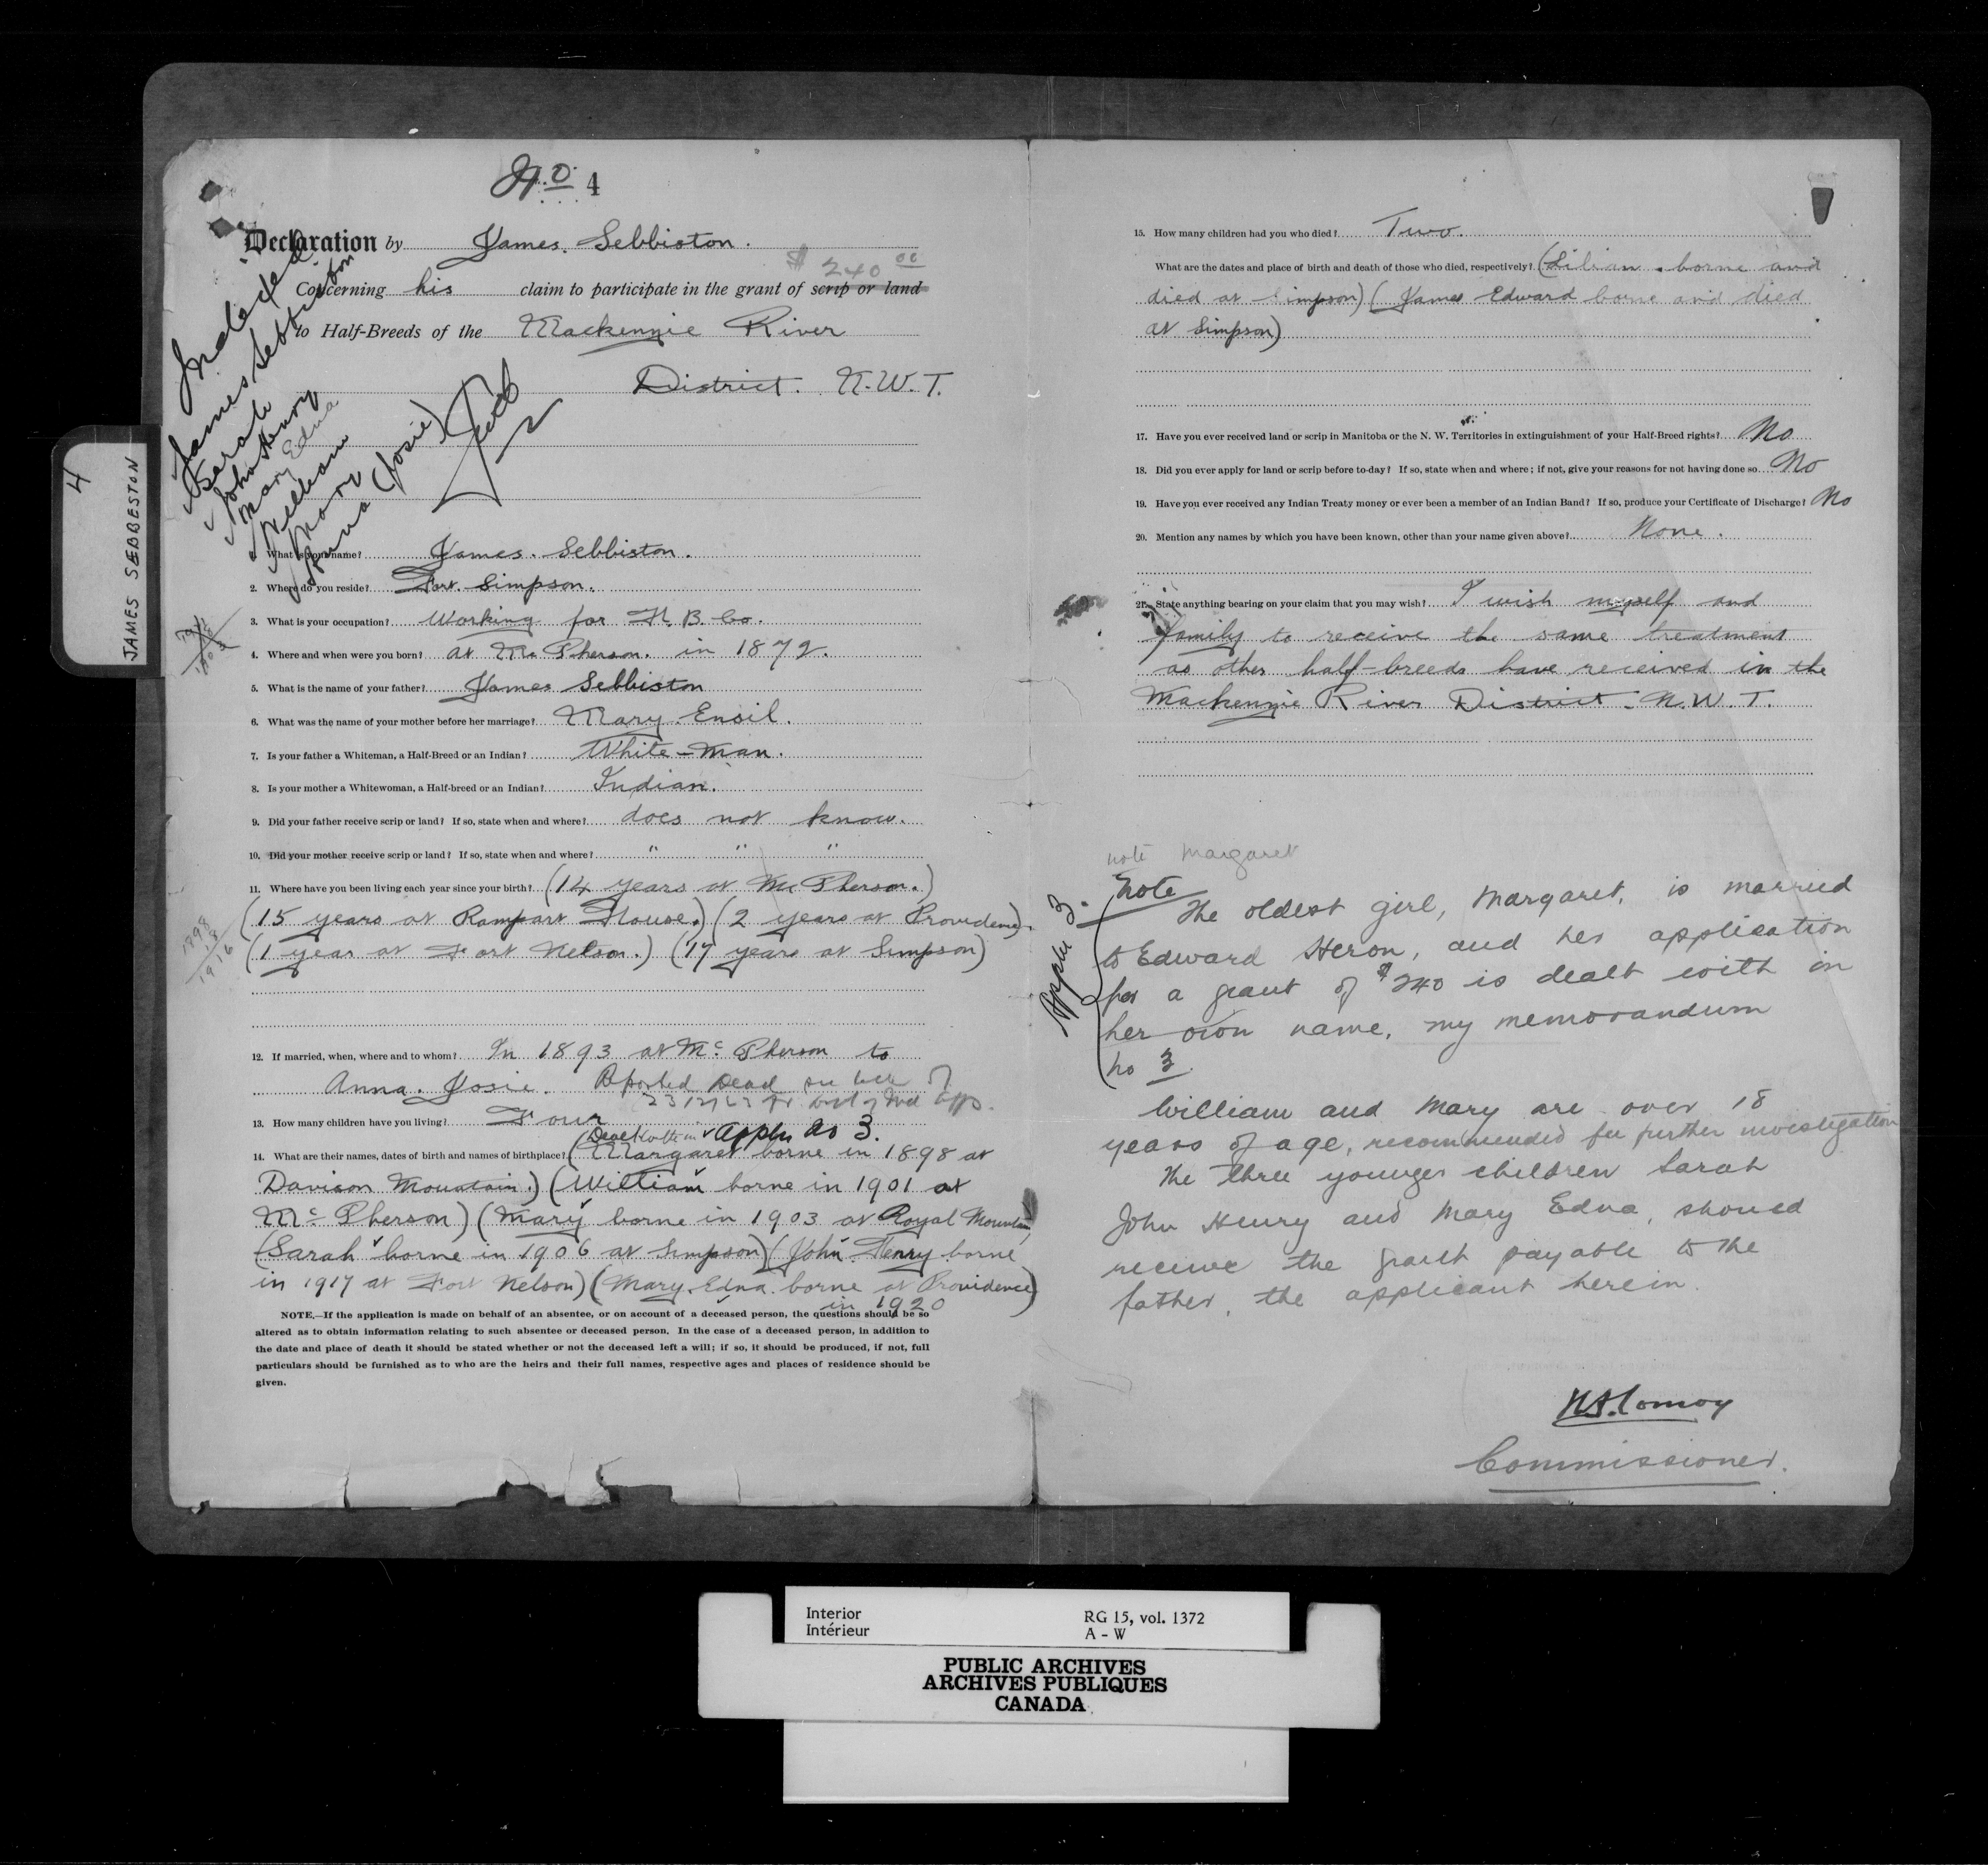 No 4
Declaration by James Sebbiston.
$ 240 00
Concerning his claim to participate in the grant of scrip or land
to Half-Breeds of the Mackenzie River
District. N.W.T.
Indexed
James Sebbiston
Sarah
John Henry
Mary Edna
William
Mary
Anna (Josie)
4
JAMES SEBBESTON
1. What is your name? James. Sebbiston.
2. Where do you reside? Fort. Simpson.
3. What is your occupation? Working for H. B. Co.
4. Where and when were you born? at Mc Pherson. in 1872.
5. What is the name of your father? James Sebbiston
6. What was the name of your mother before her marriage? Mary. Ensil.
7. Is your father a Whiteman, a Half-Breed or an Indian? White-man.
8. Is your mother a Whitewoman, a Half-breed or an Indian? Indian.
9. Did your father receive scrip or land? If so, state when and where? does not know.
10. Did your mother receive scrip or land? If so, state when and where? " " "
11. Where have you been living each year since your birth? (14 years at Mc Pherson.)
(15 years at Rampart House.) (2 years at Providence)
(1 year at Fort Nelson.) (17 years at Simpson)
1898
18
1916
12. If married, when, where and to whom? In 1893 at Mc Pherson to
Anna. Josie. Reported Dead see let of
13. How many children have you living? Four
Appln No 3.
14. What are their names, dates of birth and names of birthplace? (Margaret borne in 1898 at
Davison Mountain.) (William borne in 1901 at
Mc Pherson) (Mary borne in 1903 at Royal Mountain)
(Sarah borne in 1906 at Simpson) (John. Henry borne
in 1917 at Fort Nelson) (Mary. Edna. borne at Providence)
in 1920
NOTE.—If the application is made on behalf of an absentee, or on account of a deceased person, the questions should be so
altered as to obtain information relating to such absentee or deceased person. In the case of a deceased person, in addition to
the date and place of death it should be stated whether or not the deceased left a will; if so, it should be produced, if not, full
particulars should be furnished as to who are the heirs and their full names, respective ages and places of residence should be
given.
15. How many children had you who died? Two.
What are the dates and place of birth and death of those who died, respectively? (Lilian. borne and
died at Simpson) (James Edward borne and died
at Simpson)
17. Have you ever received land or scrip in Manitoba or the N. W. Territories in extinguishment of your Half-Breed rights? No
18. Did you ever apply for land or scrip before to-day? If so, state when and where; if not, give your reasons for not having done so. No
19. Have you ever received any Indian Treaty money or ever been a member of an Indian Band? If so, produce your Certificate of Discharge? No
20. Mention any names by which you have been known, other than your name given above? None.
21. State anything bearing on your claim that you may wish? I wish myself and
family to receive the same treatment
as other half-breeds have received in the
Mackenzie River District. N.W.T.
note Margaret
Appln 3.
Note
The oldest girl, Margaret, is married
to Edward Heron, and her application
for a grant of $240 is dealt with in
her own name, my memorandum
no 3.
William and Mary are over 18
years of age, recommended for further investigation
The three younger children Sarah
John Henry and Mary Edna, should
receive the grant payable to the
father, the applicant herein.
N.A. Comoy
Commissioner.
Interior
Intérieur
RG 15, vol. 1372
A - W
PUBLIC ARCHIVES
ARCHIVES PUBLIQUES
CANADA